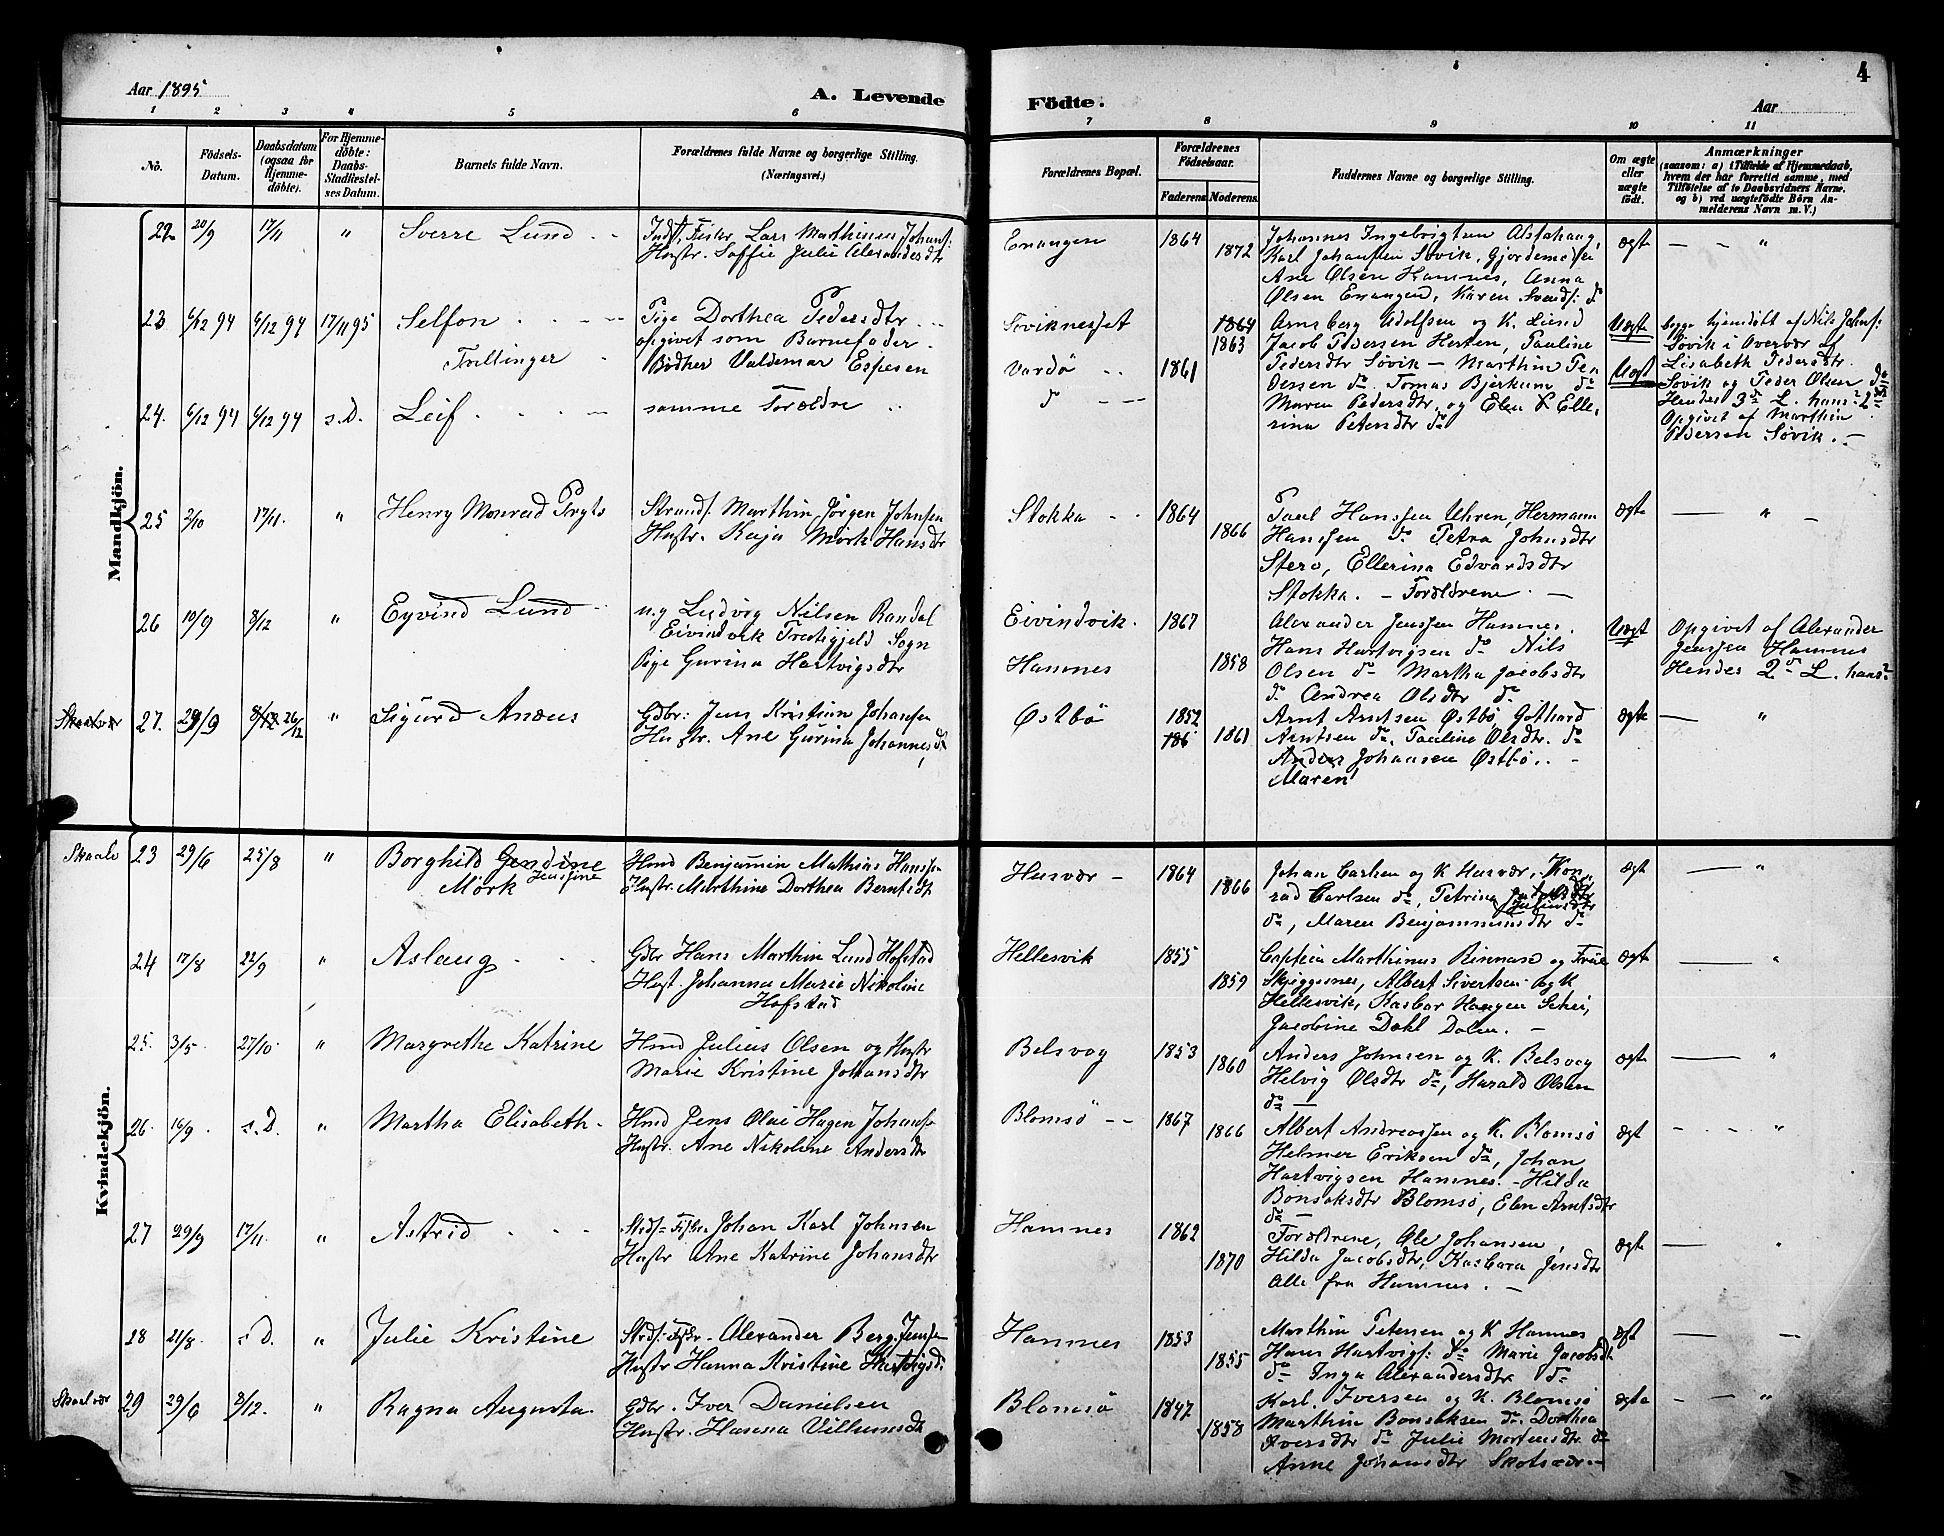 Aar 1895
A. Levende
Födte.
Aar
4
1 2 3 4 5 6 7 8 9 10 11
No.
Födsels-Datum.
Daabsdatum (ogsaa for Hjemmedöbte).
For Hjemmedöbte: Daabs-Stadfæstelses Datum.
Barnets fulde Navn.
Forældrenes fulde Navne og borgerlige Stilling.
(Næringsvei.)
Forældrenes Bopæl.
Forældrenes Födselsaar.
Faderens. Moderens.
Faddernes Navne og borgerlige Stilling.
Om ægte eller uægte födt.
Anmærkninger
(saasom: a) i Tilfælde af Hjemmedaab,
hvem der har forrettet samme, med
Tilföielse af to Daabsvidners Navne.
og b) ved uægtefödte Börn An-
melderens Navn m. V.)
Mandkjön.
22 20/9 17/11 " Sverre Lund Indst, Fisker Lars Marthinus Johans:
Hustr. Soffie Julie Alexandersdtr
Enangen 1864 1872
Johannes Ingebrigtsen Alstahaug,
Karl Johansen Søvik, Gjordemo
Ane Olsen Hamnes, Anna
Olsen Enangen, Karen Svends: do
ægte — — "
23 6/12 94 6/12 94 17/11 95 Selfon
Trillinger
Pige Dorthea Pedersdtr
opgivet som Barnefader
Bødker Valdemar Espesen
Søviknesset
Vardø
1861 1864 1863
Arnsberg Adolfsen og K. Lund
Jacob Pedersen Hesten, Pauline
Pedersdtr Søvik — Marthin Pe
dersen do. Tomas Bjerkum do
Maren Pedersdtr. og Elen & Elle,
rina Petersdtr do
Uægte
Uægt
begge hjemdøbt af Nils Johns:
Søvik i Overvær af
Lisabeth Pedersdtr.
Søvik og Peder Olsen do
Hendes 3de L. hans 2de
Opgivet af Marthin
Pedersen Søvik. —
24. 6/12 94 6/12 94 s.D. Leif. samme Forældre do
25 2/10 17/11. " Henry Monrad Pryts
Strands. Marthin Jørgen Johnsen
Hustr. Kaja Mørk Hansdtr
Stokka 1864 1866
Paul Hanssen Uhren, Hermann
Hanssen do Petra Johnsdtr
Stero, Ellerina Edvardsdtr
Stokka. — Forældrene. —
ægte — " —
26 10/9 8/12 " Eyvind Lund
u.g Ludvig Nilsen Randal
Eivindvik Prestigjeld Sogn
Pige Gurina Hartvigsdtr
Eivindvik.
Hamnes
1867 1858
Alexander Jenssen Hamnes.
Hans Hartvigsen do Nils
Olsen do Martha Jacobsdtr
do Andrea Olsdtr do
Uægt
Opgivet af Alexander
Jenssen Hamnes
Hendes 2de L. hans
Skaalvær 27. 29/9 8/12 26/12 " Sigurd Andeus
Gdbr: Jens Kristian Johansen
Hustr. Ane Gurina Johannesdt
Østbö 1852 186 1861
Arnt Arntsen Østbø, Gothard
Arntsen do, Pauline Olsdtr. do
Anders Johansen Østbø. —
Maren
ægte — "
Kvindekjön.
Skaalv 23 29/6 25/8 " Borghild Gendine Jensine
Mörk
Hmd Benjamin Mathias Hansse
Hustr. Marthine Dorthea Berntsdt
Husvær — 1864 1866
Johan Carlsen og K Husvær, Kon
rad Carlsen do, Petrine Juliusdtr
do, Maren Benjaminsdtr do
ægt — "
24 17/8 22/9 " Aslaug
Gdbr Hans Marthin Lund Hofstad
Hust. Johanna Marie Nikoline
Hofstad
Hellesvik 1855 1859
Captein Marthinus Rinnasæ og Frue
Skjeggesnes, Albert Sivertsen og K
Hellesvik, Kasbar Haagen Schei,
Jacobine Dahl Dalen. —
ægt — "
25. 3/5. 27/10 " Margrethe Katrine
Hmd Julius Olsen og Hustr
Marie Kristine Johansdtr
Belsvog 1853 1860
Anders Johnsen og K. Belsvog
Helvig Olsdtr do, Harald Olsen
do —
ægte — "
26. 16/9 s.D. " Martha Elisabeth.
Hmd Jens Olai Hagen Johans:
Hustr. Ane Nikoline Andersdtr
Blomsö — 1867 1866
Albert Andreassen og K. Blomsö
Helmer Eriksen do, Johan
Hartvigsen Hamnes. — Hilda
Bonsaksdtr Blomsö, Elen Arntsdtr
do —
ægt — "
27 29/9 17/11. " Astrid
Strds: Fisker Johan Karl Johnsen
Hustr Ane Katrine Johansdtr
Hamnes 1862 1870
Forældrene, Ole Johansen,
Hilda Jacobsdtr, Kasbara Jensdtr
Alle fra Hamnes. —
ægt — "
28 21/8. s.D. " Julie Kristine
Strds: Fisker. Alexander Berg Jense
Hustr Hanna Kristine Hartvigsd:
Hamnes 1853 1855
Marthin Petersen og K Hamnes
Hans Hartvigs: do Marie Jacobsdt
do Inga Alexandersdtr do
ægt — —
Skaalvær 29 29/6 8/12. " Ragna Augusta.
Gdbr. Iver Danielsen
Hustr. Hanna Villumsdt
Blomsö 1847 1858
Karl Iversen og K. Blomsö
Marthin Bonsaksen do. Dorthea
Iversdtr do Julie Mortensdtr do
Anne Johansdtr Skotsvær —
ægte — "